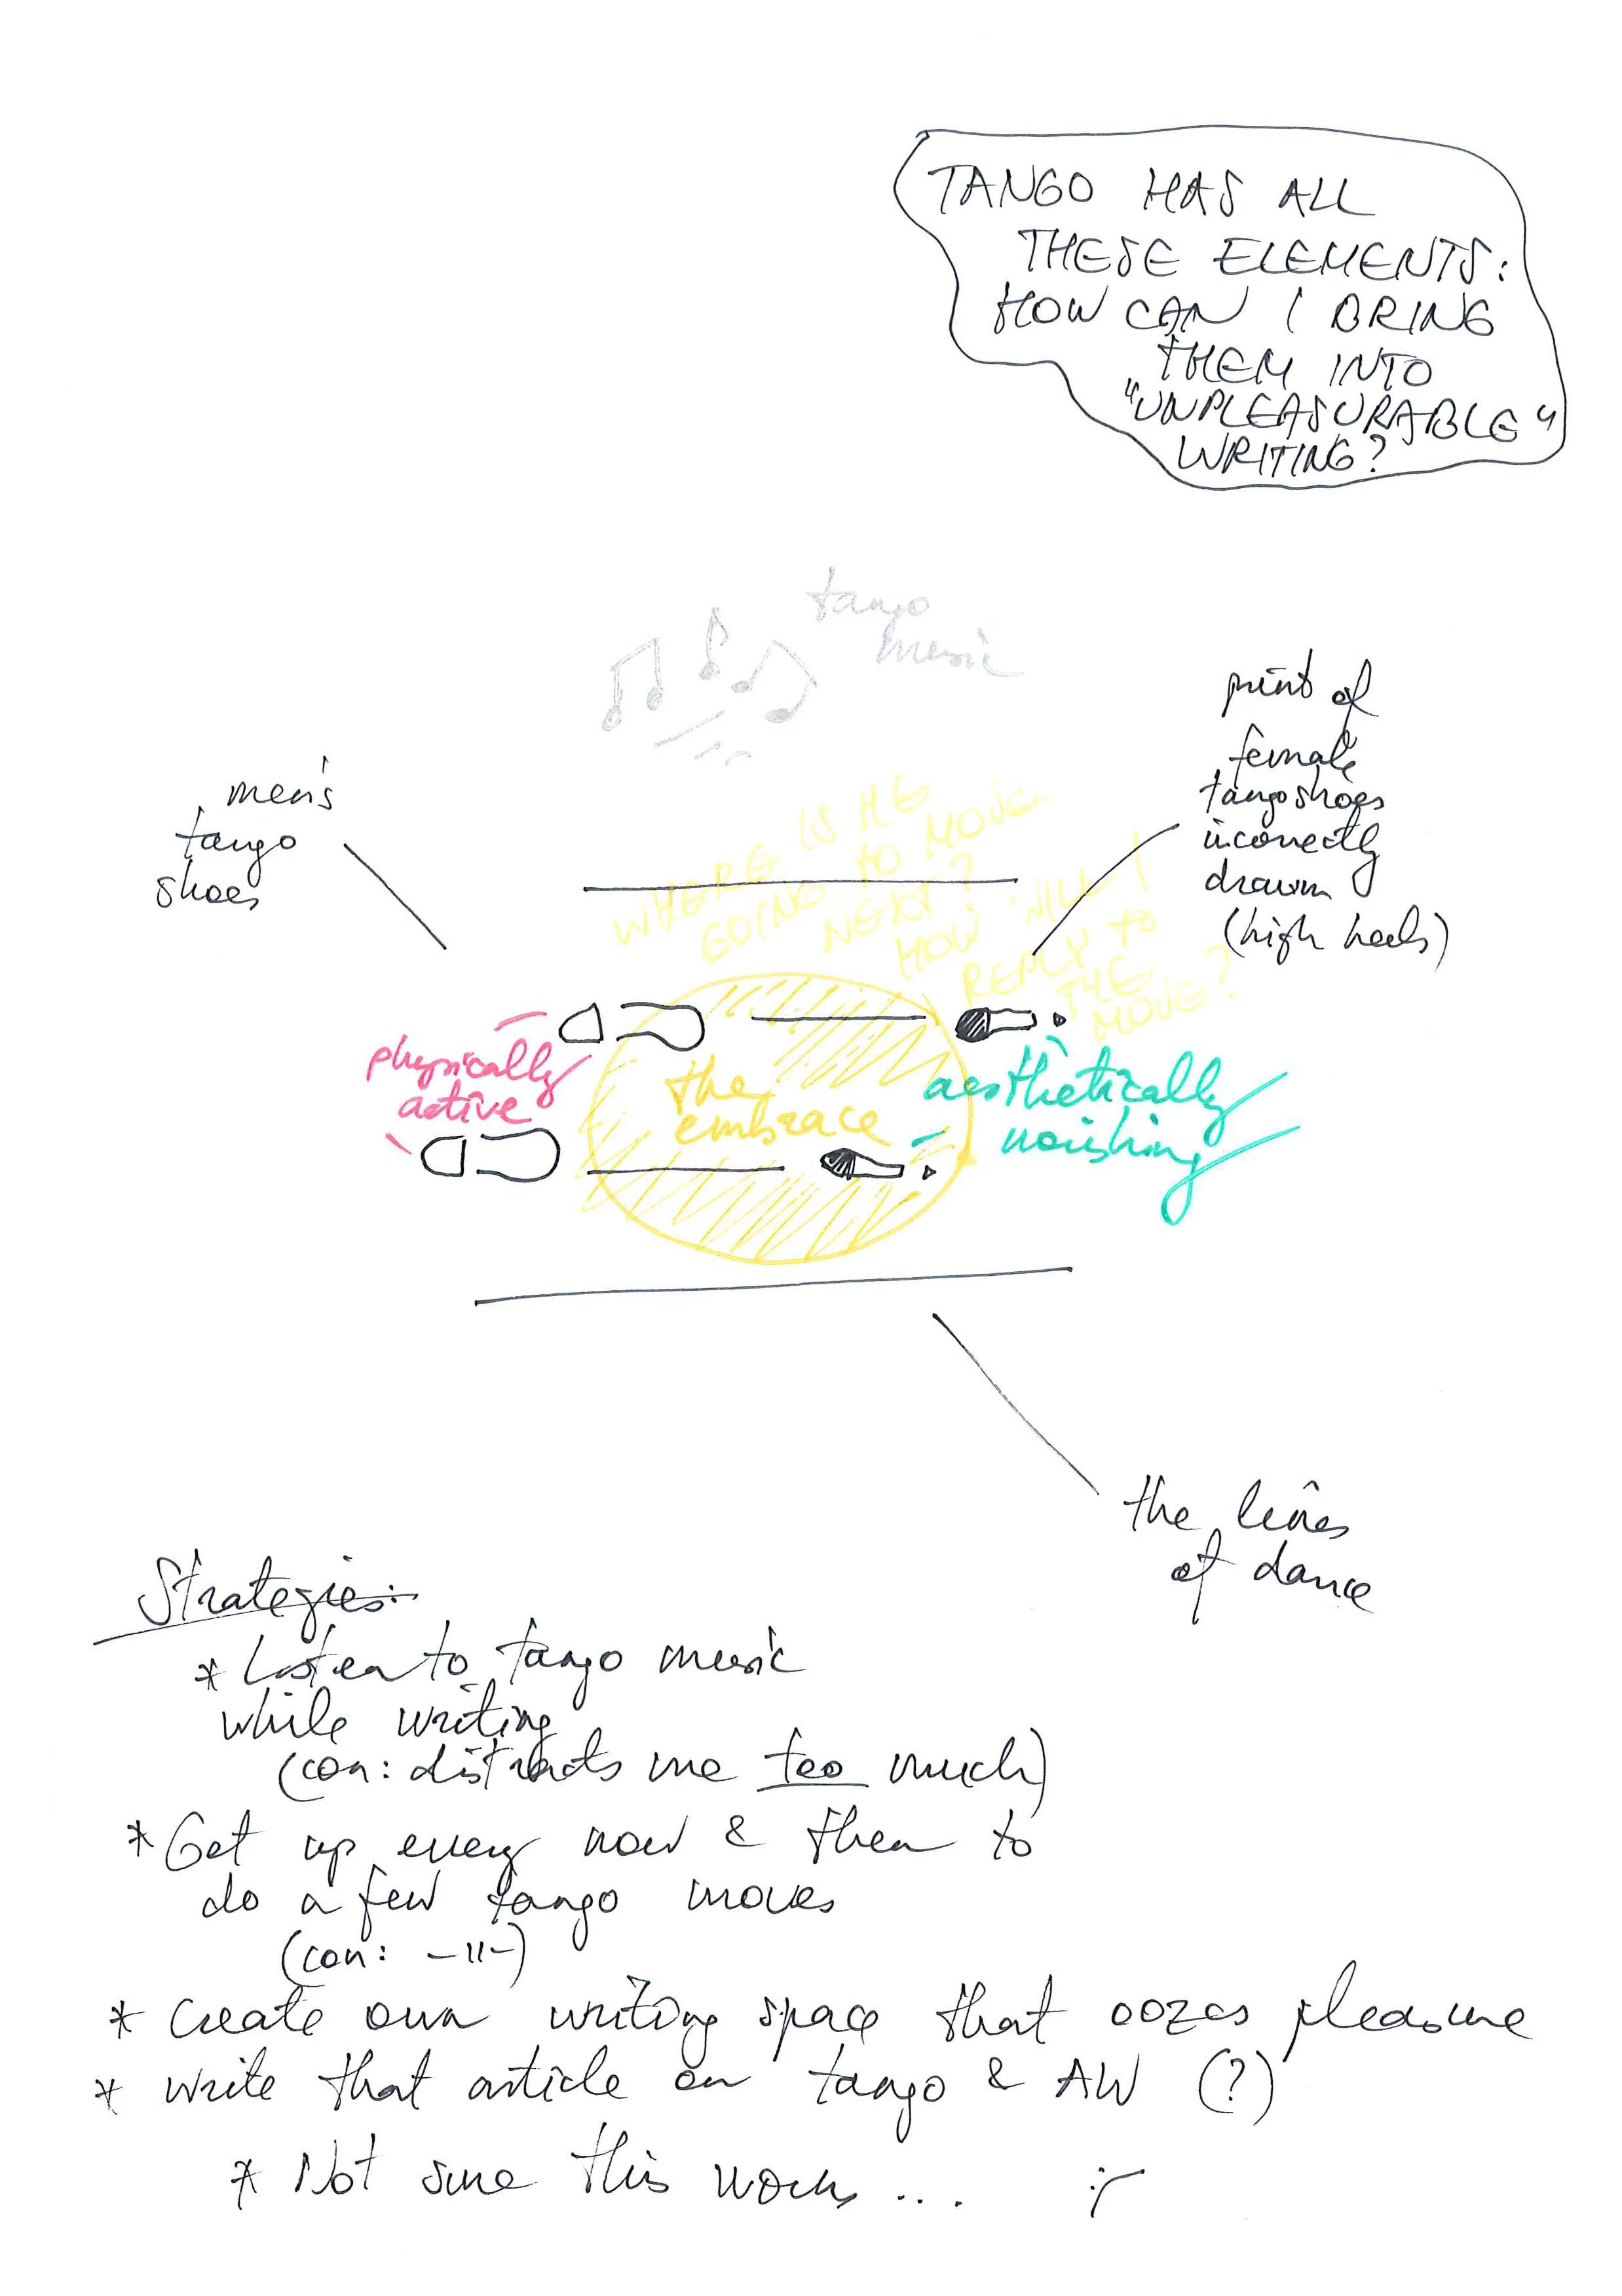 TANGO HAS ALL
THESE ELEMENTS:
HOW CAN I BRING
THEM INTO
"UNPLEASURABLE"
WRITING?
tango
music
men's
tango
shoes
print of
female
tango shoes
incorrectly
drawn
(high heels)
WHERE IS HE
GOING TO MOVE
NEXT?
HOW WILL I
REPLY TO
THE
MOVE?
physically
active
the
embrace
aesthetically
noishing
the lines
of dance
Strategies:
* Listen to tango music
while writing
(con: distracts me too much)
* Get up every now & then to
do a few tango moves
(con: -11-)
* Create own writing space that oozes pleasure
* write that article on tango & AW (?)
* Not sure this works... :-/